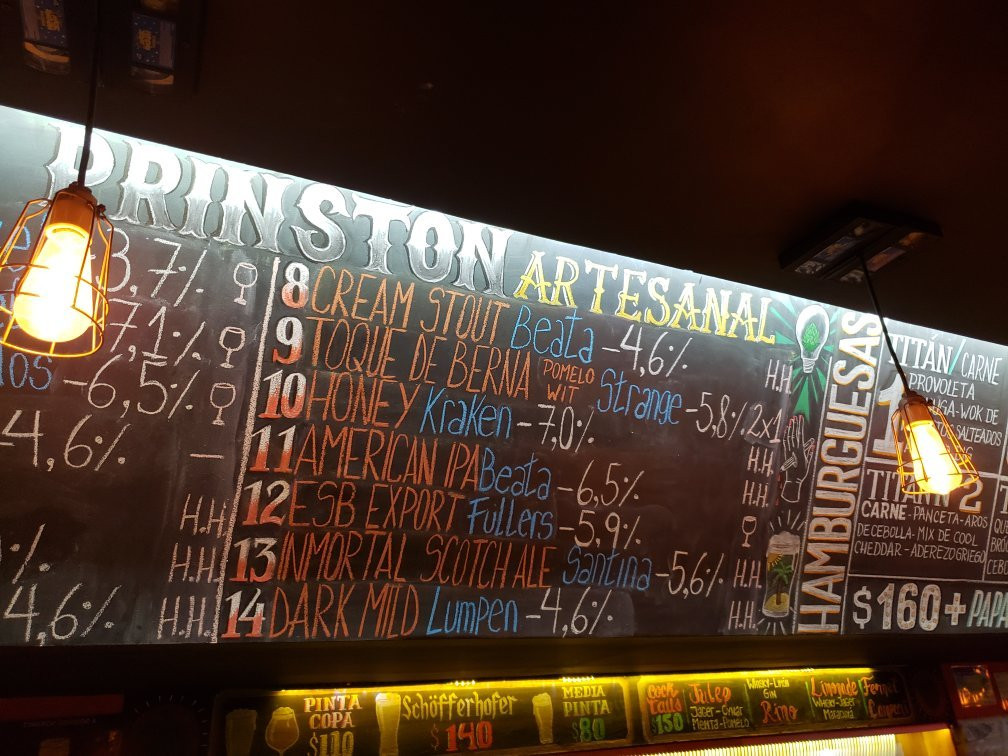 PRINSTON ARTESANAL
3,7%
7,1%
-6,5%
-4,6%
H.H.
H.H.
4,6% H.H.
8 CREAM STOUT Beata -4,6% H.H.
9 TOQUE DE BERNA POMELO WIT Strange -5,8% 2x1
10 HONEY Kraken -7,0% H.H.
11 AMERICAN IPA Beata -6,5% H.H.
12 ESB EXPORT Fullers -5,9%
13 INMORTAL SCOTCH ALE Santina -5,6% H.H.
14 DARK MILD Lumpen -4,6% H.H.
HAMBURGUESAS
TITÁN 1
CARNE
PROVOLETA
WOK DE
SALTEADOS
TITÁN 2
CARNE-PANCETA-AROS
DE CEBOLLA-MIX DE COOL
CHEDDAR-ADEREZO GRIEGO
$160+ PAPA
PINTA
COPA
$110
Schöfferhofer
$140
MEDIA
PINTA
$80
COCK
TAILS
$150
Julep
MENTA-POMELO
GIN